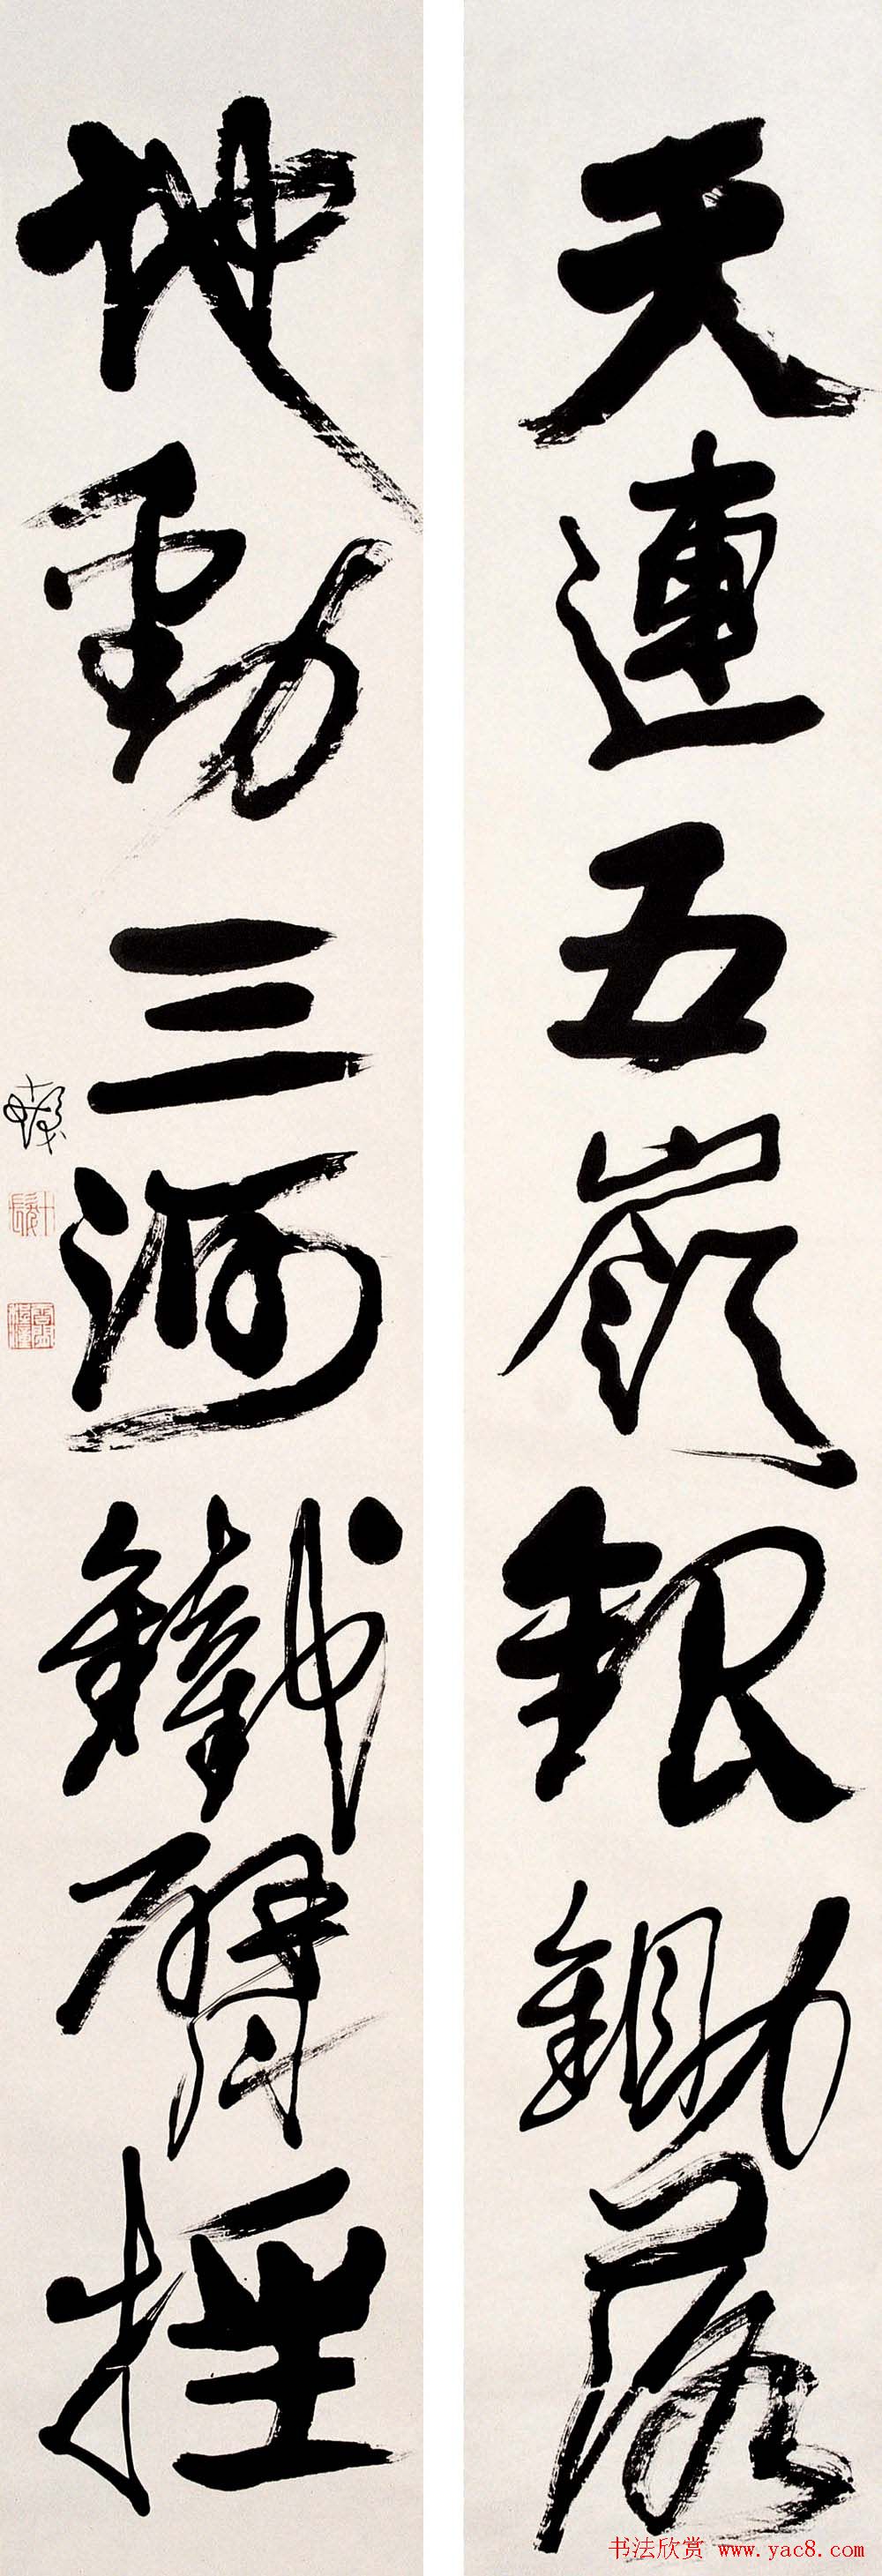 天連五嶺銀鋤落
地動三河鐵臂搖
書法欣賞 www.yac8.com